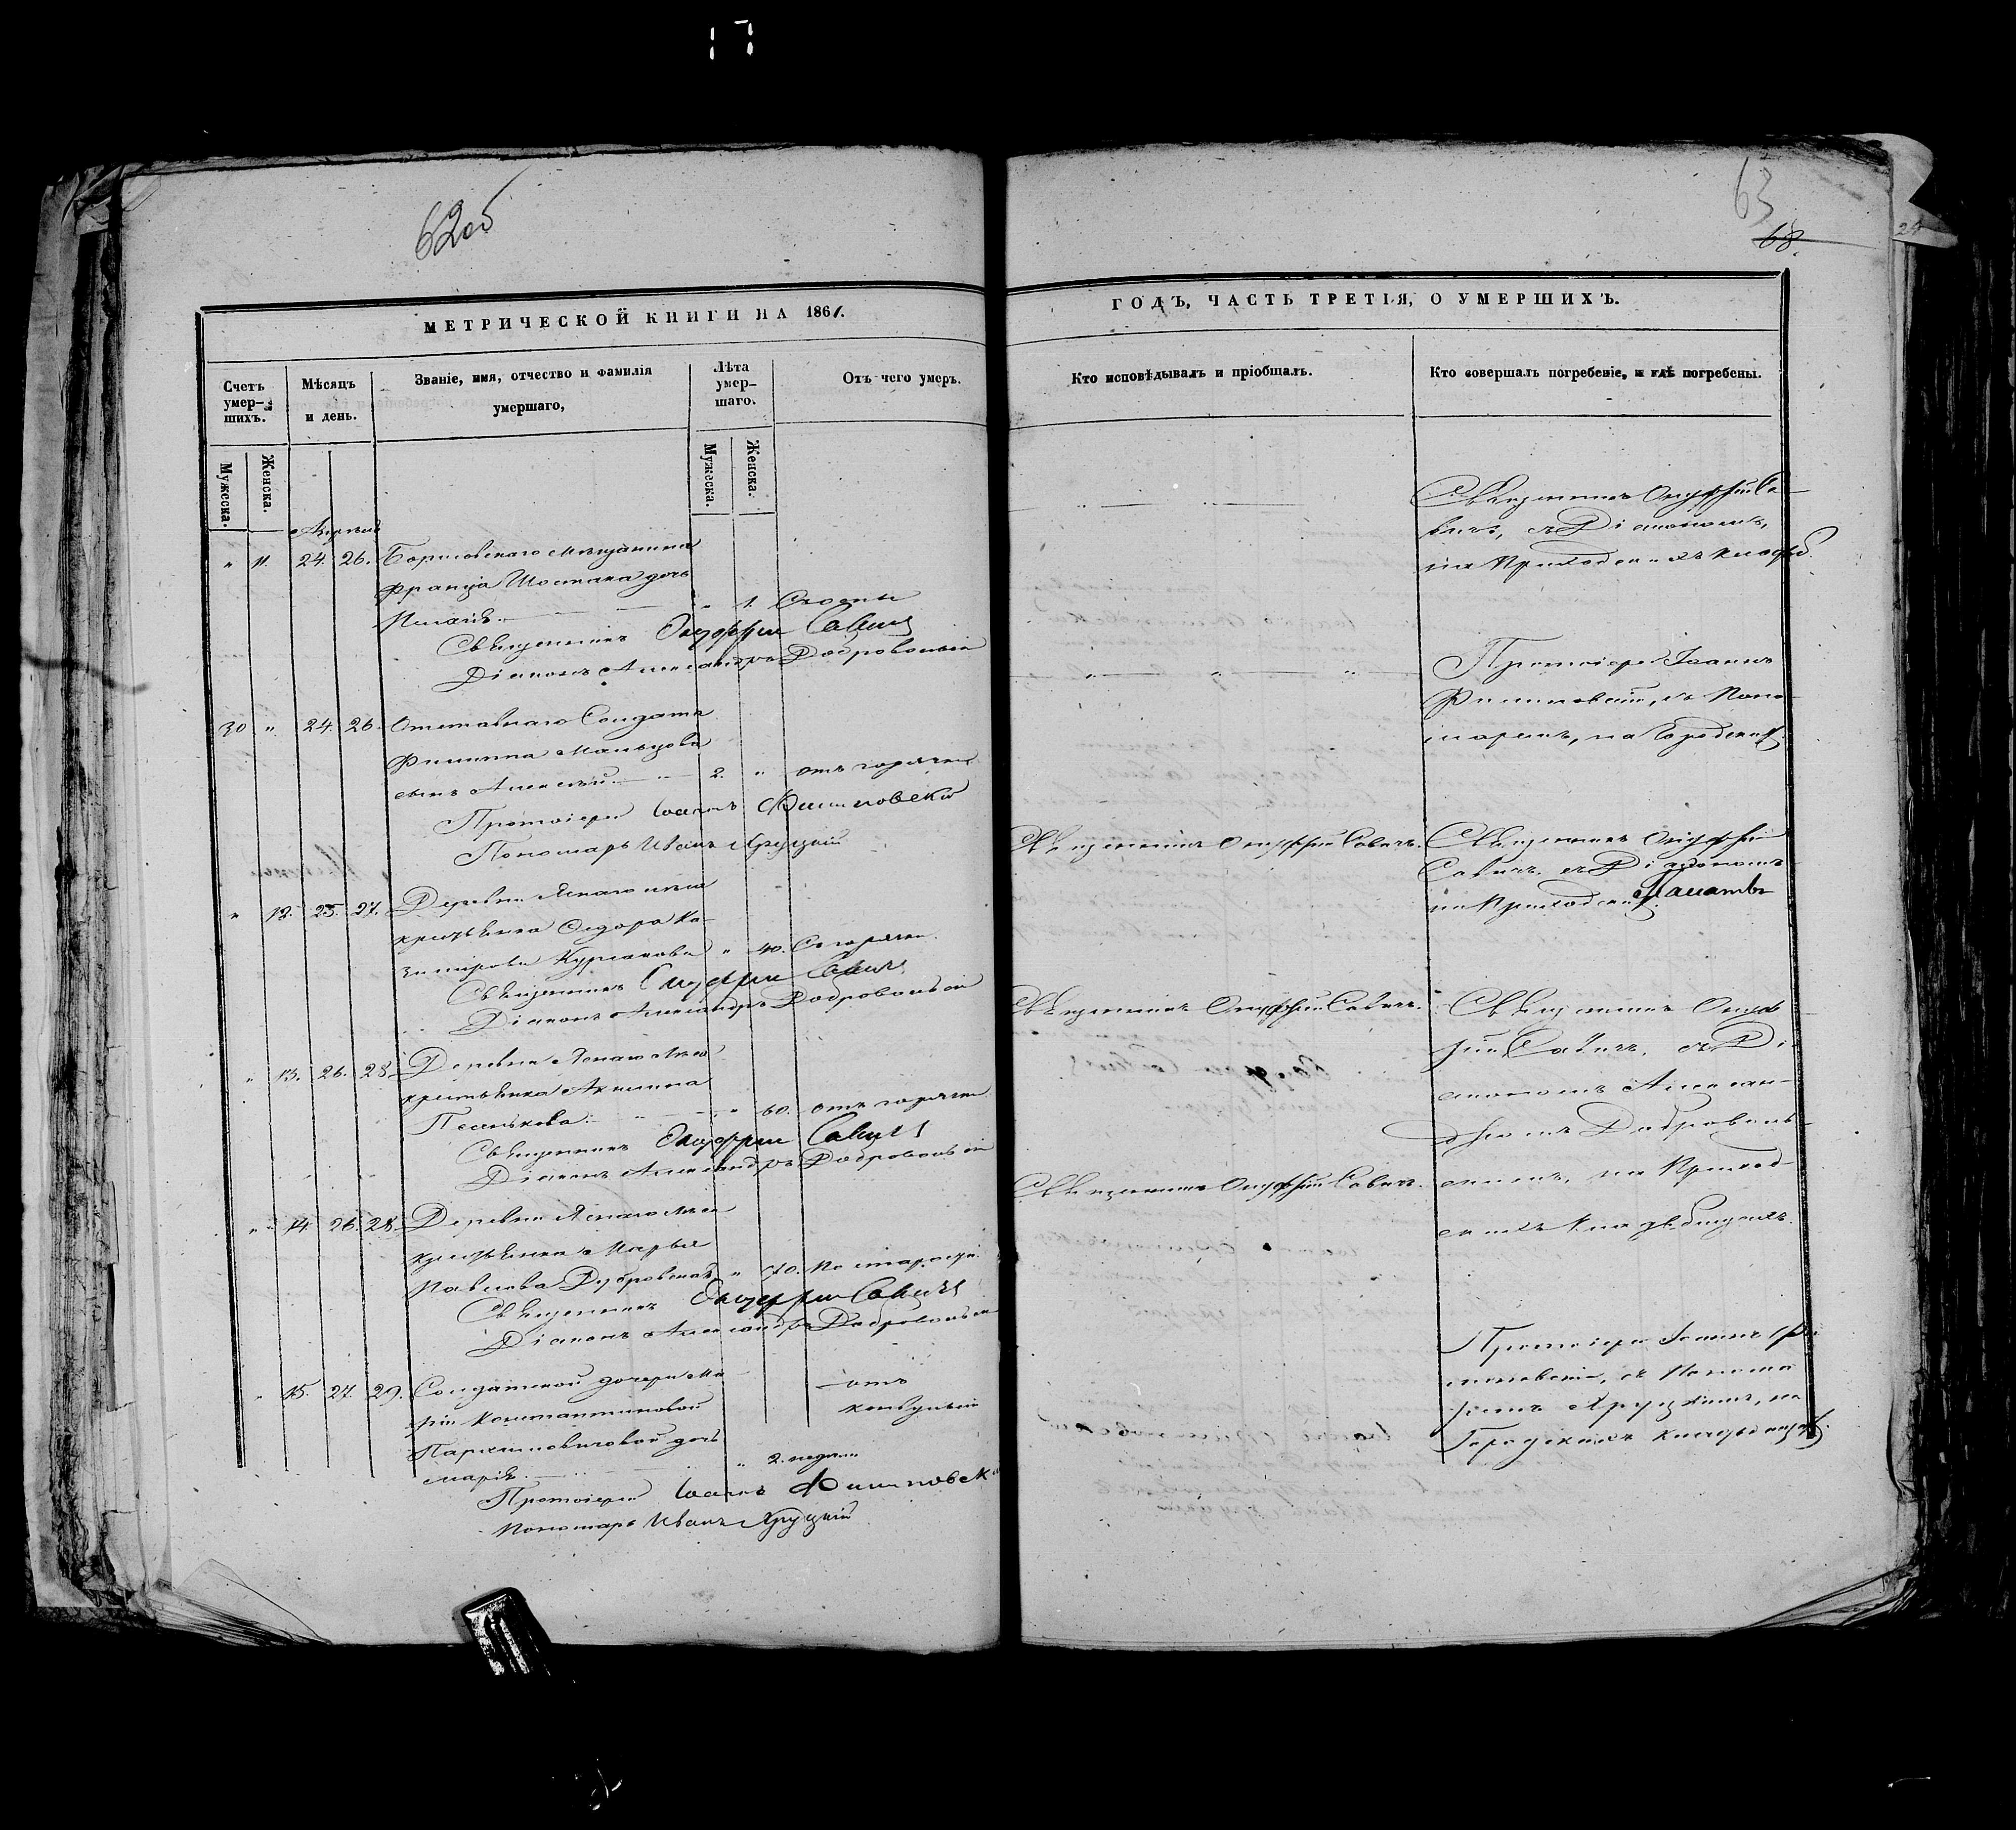 62об
МЕТРИЧЕСКОЙ КНИГИ НА 1861.
Счетъ умер-шихъ.
Мѣсяцъ и день.
Званіе, имя, отчество и фамилія умершаго,
Лѣта умер-шаго.
Отъ чего умеръ.
Мужеска.
Женска.
Мужеска.
Женска.
Апрѣль
" 11. 24. 26. Борисовскаго мѣщанина
Франца Шостака дочь
" 1. Оспы
Священникъ Онуфрій Савичъ
Діаконъ Александръ Добровольскій
30 " 24. 26. Отставнаго Солдата
Филиппа Мальцова
сынъ Алексѣй. 2. " отъ горячки
Протоіерей Іоаннъ Филиповскій
Пономарь Иванъ Хруцкій
" 12. 25. 27. Деревни
крестьянка Сидора Ка-
" 40. горячки
Священникъ Онуфрій Савичъ
Діаконъ Александръ Добровольскій
" 13. 26. 28. Деревни
крестьянка Акилина
" 60. отъ горячки
Священникъ Онуфрій Савичъ
Діаконъ Александръ Добровольскій
" 14. 26. 28. Деревни
крестьянка Марья
Павлова Дубровская " 70. По старости
Священникъ Онуфрій Савичъ
Діаконъ Александръ Добровольскій
" 15. 27. 29. Солдатской дочери Ма-
ріи Константиновой отъ
дочь конвульсій
Марія. " 2. недѣли
Протоіерей Іоаннъ Филиповскій
Пономарь Иванъ Хруцкій
63
68.
24
ГОДЪ, ЧАСТЬ ТРЕТІЯ, О УМЕРШИХЪ.
Кто исповѣдывалъ и пріобщалъ.
Кто совершалъ погребеніе, и гдѣ погребены.
Священникъ Онуфрій Са-
вичъ, съ Діакономъ,
на Приходскихъ кладб.
Протоіерей Іоаннъ
Филиповскій, съ Поно-
маремъ, на Городскихъ
Священникъ Онуфрій Савичъ.
Священникъ Онуфрій
Савичъ, съ Діакономъ
на Приходск.
Священникъ Онуфрій Савичъ.
Священникъ Онуф-
рій Савичъ, съ Ді-
акономъ Алексан-
дромъ Доброволь-
скимъ, на Приход-
скихъ Кладбищахъ.
Священникъ Онуфрій Савичъ.
Протоіерей Іоаннъ Фи-
липовскій, съ Понома-
ремъ Хруцкимъ, на
Городскихъ кладбищахъ.